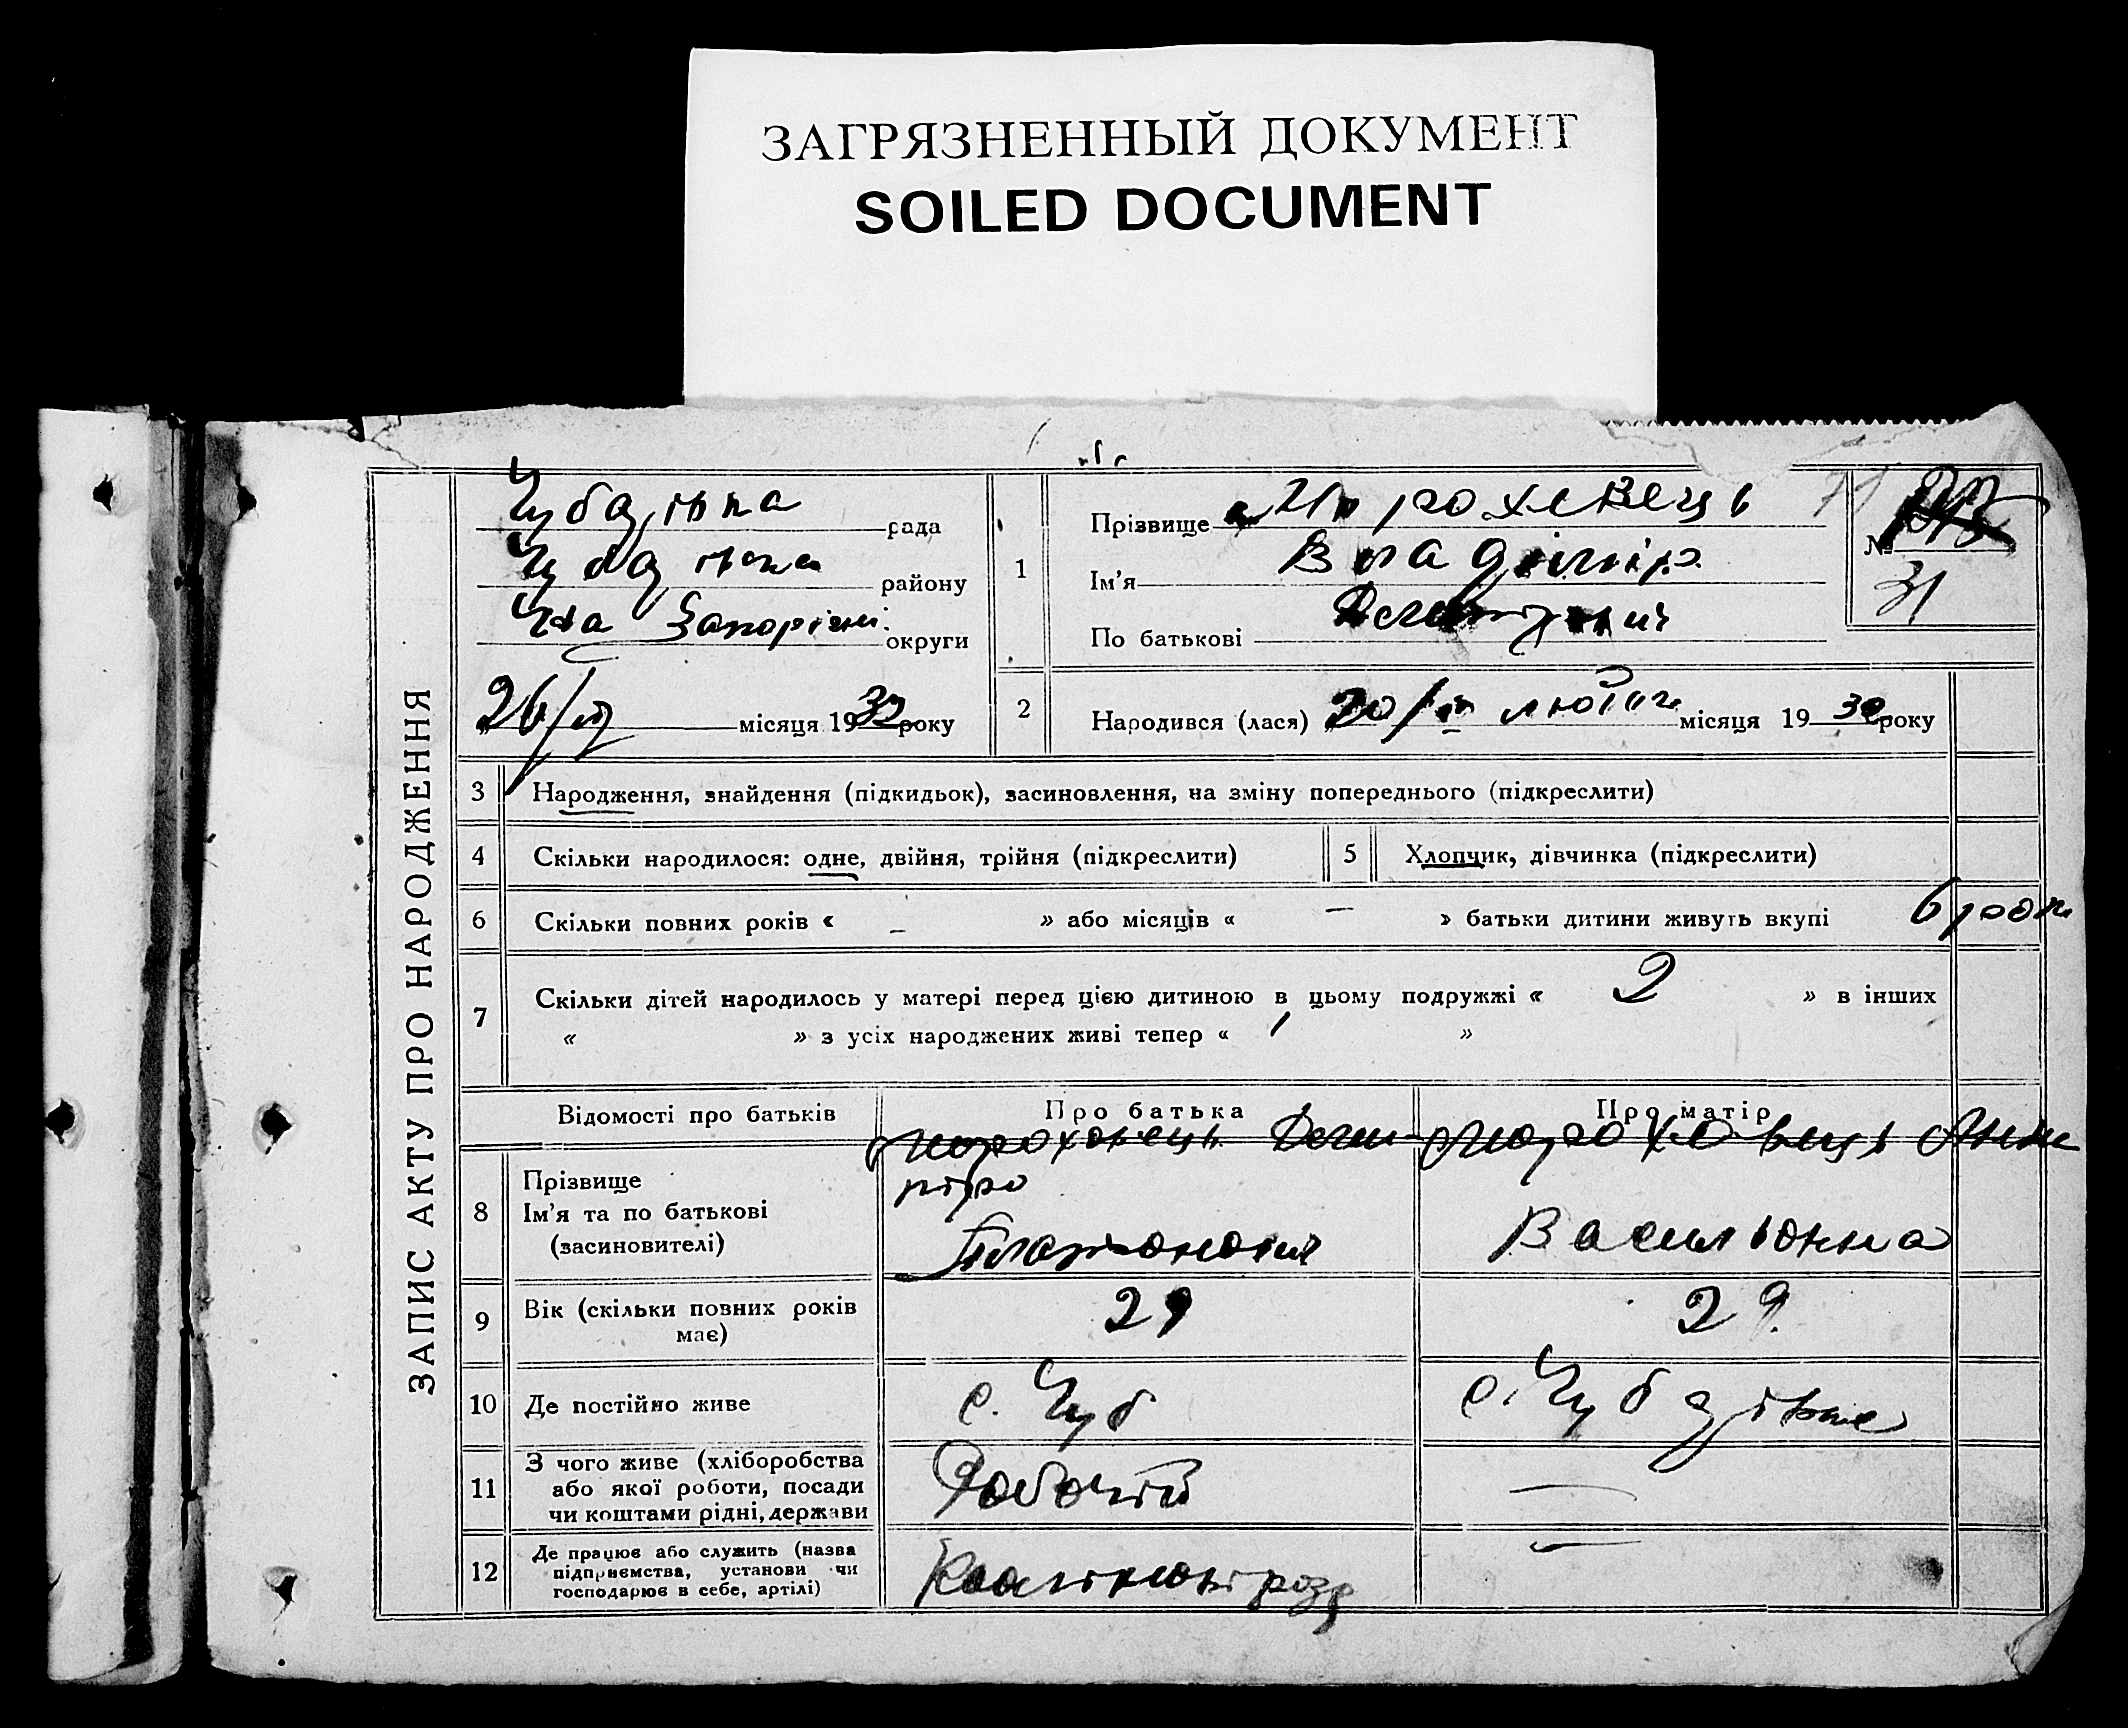 ЗАГРЯЗНЕННЫЙ ДОКУМЕНТ
SOILED DOCUMENT
ЗАПИС АКТУ ПРО НАРОДЖЕННЯ
рада
району
округи
26/ місяця 1932 року
1
Прізвище
Ім'я Владімір
По батькові
№
31
2
Народився (лася) 20/ місяця 19 32 року
3 Народження, знайдення (підкидьок), засиновлення, на зміну попереднього (підкреслити)
4 Скільки народилося: одне, двійня, трійня (підкреслити)
5 Хлопчик, дівчинка (підкреслити)
6 Скільки повних років « – » або місяців « – » батьки дитини живуть вкупі 6
7 Скільки дітей народилось у матері перед цією дитиною в цьому подружжі « 2 » в інших
« » з усіх народжених живі тепер « »
Відомості про батьків
Про батька
Про матір
8
Прізвище
Ім'я та по батькові
(засиновителі)
Платонович
Васильовна
9 Вік (скільки повних років
має)
29
29
10 Де постійно живе
с. Чуб
с.
11
З чого живе (хліборобства
або якої роботи, посади
чи коштами рідні, держави
Робочій
—
12
Де працює або служить (назва
підприємства, установи чи
господарює в себе, артілі)
—